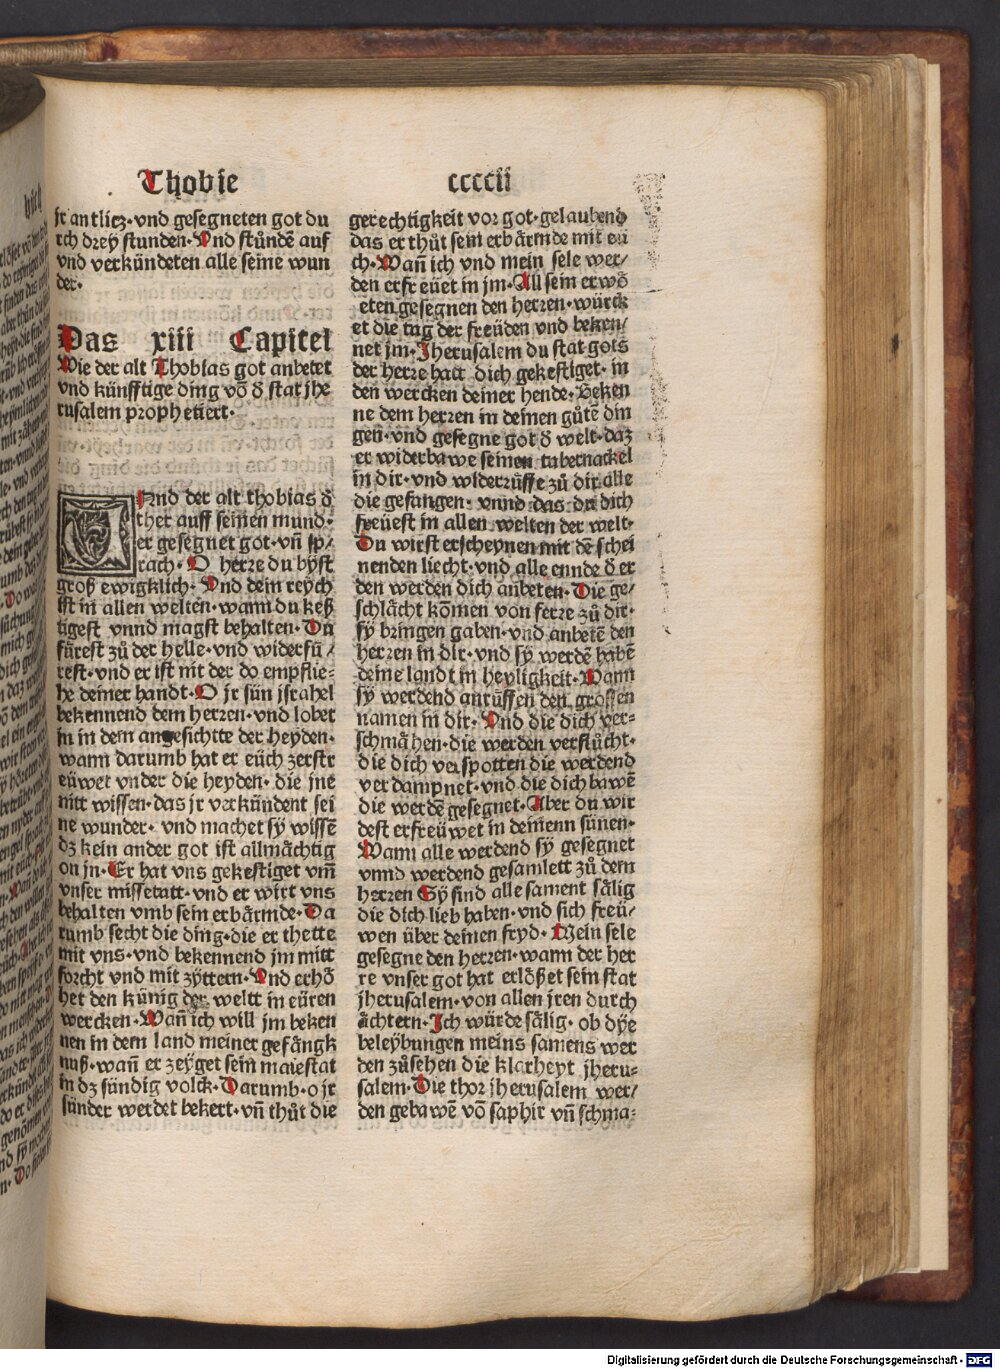 Thobie
ccccii
jr antlicz·vnd gesegneten got du
rch dreÿ stunden·Vnd stůndē auf
vnd verkündeten alle seine wun
der·
Das xiii Capitel
Wie der alt Thobias got anbetet
vnd künfftige ding vō ď stat jhe
rusalem prophetiert·
VNnd der alt thobias ď
ther auff seinen mund·
er gesegnet got·vn̄ sp/
rach·O herre du byst
groß ewigklich·Vnd dein reÿch
ist in allen welten·wann du keß
tigest vnnd magst behalten·Du
fürest zů der helle·vnd widerfü/
rest·vnd er ist nit der do empflie-
he deiner handt·O jr sün jsrahel
bekennend dem herren·vnd lobet
in in dem angesichtte der heyden·
wann darumb hat er eüch zerstr
eüwet vnder die heyden·die jne
nitt wissen·das jr verkündent sei
ne wunder·vnd machet sÿ wissē
dz kein ander got ist allmächtig
on jn·Er hat vns gekestiget vm̄
vnser missetatt·vnd er wirt vns
behalten vmb sein erbärmde·Da
rumb secht die ding·die er thette
mit vns·vnd bekennend jm mitt
forcht vnd mit zÿttern·Vnd erhö
het den künig der weltt in eüren
wercken·Wan̄ ich will jm beken
nen in dem land meiner gefängk
nuß·wan̄ er zeyget sein maiestat
in dz sündig volck·Darumb·o jr
sünder werdet bekert·vn̄ thůt die
gerechtigkeit vor got·gelaubend
das er thůt sein erbärmde mit eü
ch·Wan̄ ich vnd mein sele wer/
den erfreüet in jm·All sein erwö
eten gesegnen den herren·würck
et die tag der freüden vnd beken/
net jm·Jherusalem du stat gots
der herre hatt dich gekestiget·in
den wercken deiner hende·Beken
ne dem herren in deinen gůtē din
gen·vnd gesegne got ď welt·daz
er widerbawe seinen tabernackel
in dir·vnd widerrůffe zů dir alle
die gefangen·vnnd das du dich
freüest in allen welten der welt·
Du wirst erscheynen mit dē schei
nenden liecht·vnd alle ennde ď er
den werden dich anbeten·Die ge/
schlächt kōmen von ferre zů dir·
sÿ bringen gaben·vnd anbetē den
herren in dir·vnd sÿ werdē habē
deine landt in heyligkeit·Wann
sÿ werdend anrůffen den grossen
namen in dir·Vnd die dich ver-
schmähen·die werden verflůcht·
die dich verspotten die werdend
verdampnet·vnd die dich bawē
die werdē gesegnet·Aber du wir
dest erfreüwet in deinenn sünen·
Wann alle werdend sÿ gesegnet
vnnd werdend gesamlett zů dem
herren Sÿ sind alle sament sälig
die dich lieb haben·vnd sich freü/
wen über deinen fryd·Mein sele
gesegne den herren·wann der her
re vnser got hat erlößet sein stat
jherusalem·von allen jren durch
ächtern·Ich würde sälig·ob dÿe
beleÿbungen meins samens wer
den zůsehen die klarheyt jheru-
salem·Die thor jherusalem wer/
den gebawē vō saphir vn̄ schma-
Digitalisierung gefördert durch die Deutsche Forschungsgemeinschaft - DFG